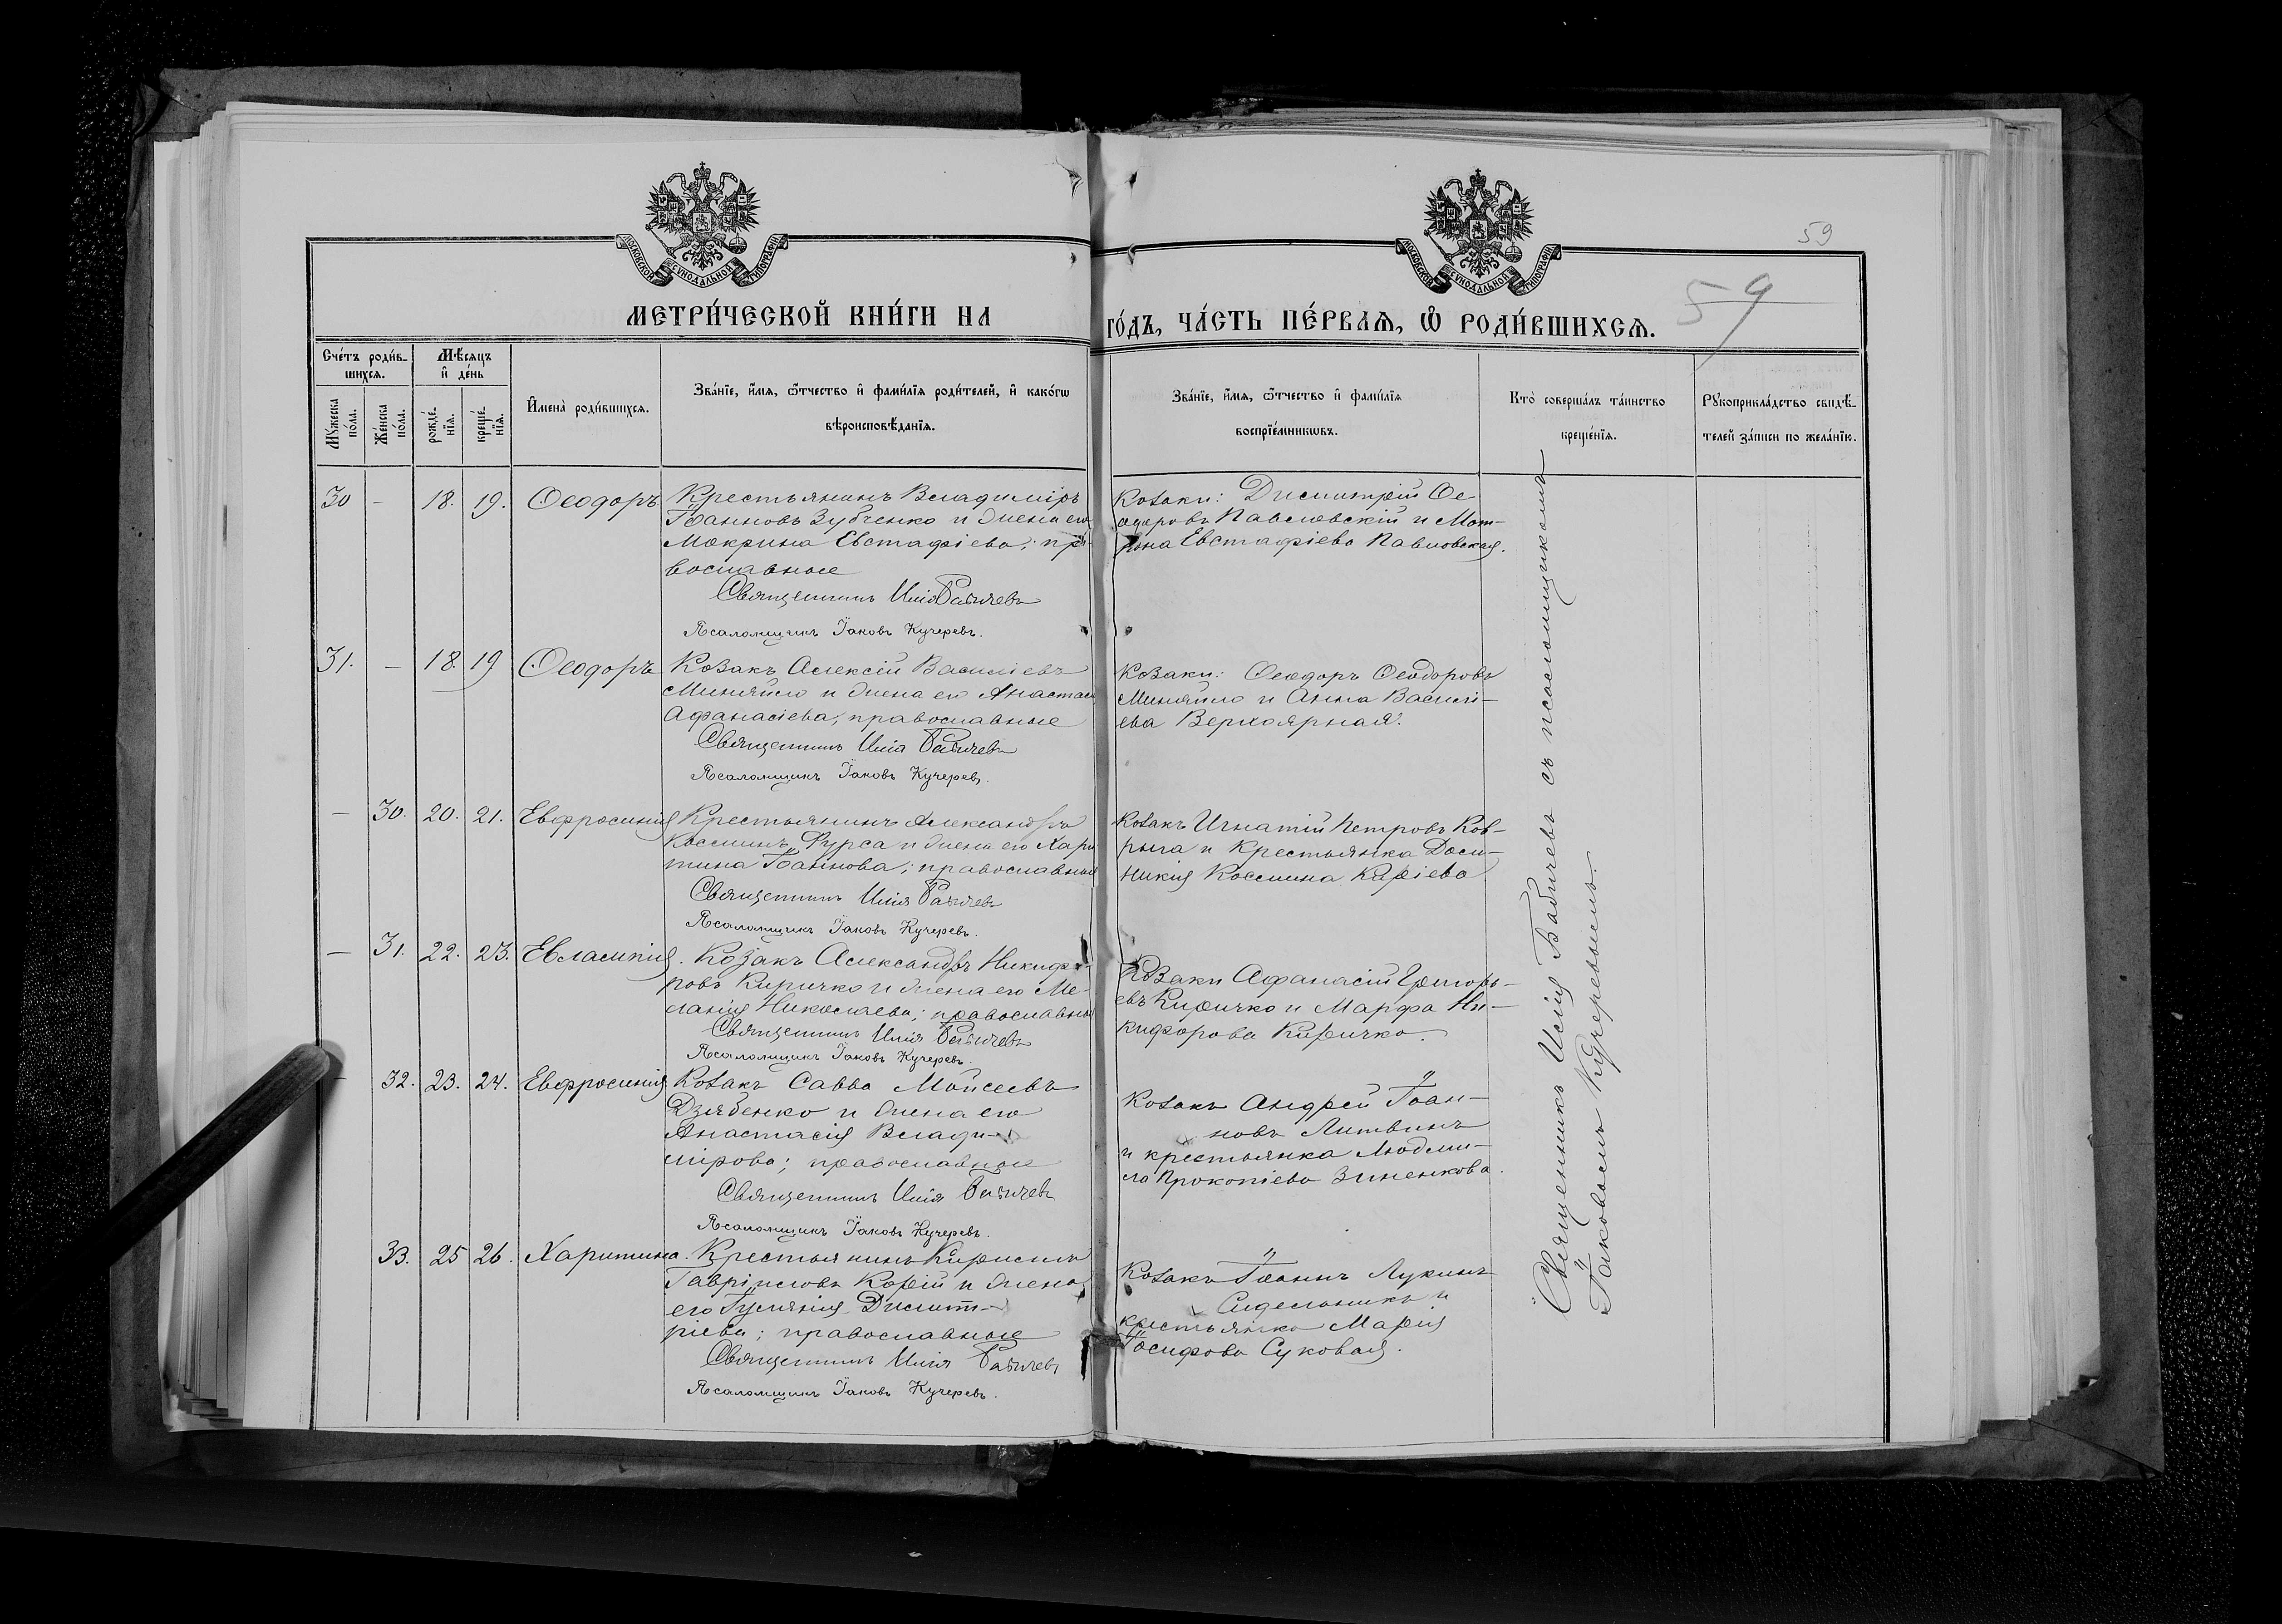 МОСКОВСКОЙ СѴНОДАЛЬНОЙ ТИПОГРАФІИ
МОСКОВСКОЙ СѴНОДАЛЬНОЙ ТИПОГРАФІИ
59
59
МЕТРИ́ЧЕСКОЙ КНИ́ГИ НА ГО́ДЪ, ЧА́СТЬ ПЕ́РВАѦ, Ѡ РОДИ́ВШИХСѦ.
Сче́тъ роди́в-
шихсѧ.
Мѣ́сѧцъ
и҆ де́нь
Мꙋ́жеска
по́ла.
Же́нска
по́ла.
рожде́-
нїѧ.
креще́-
нїѧ.
И҆мена̀ роди́вшихсѧ.
Зва́нїе, и҆́мѧ, ѻ҆́тчество и҆ фами́лїѧ роди́телей, и҆ како́гѡ
вѣроисповѣ́данїѧ.
Зва́нїе, и҆́мѧ, ѻ҆́тчество и҆ фами́лїѧ
воспрїе́мникѡвъ.
Кто̀ соверша́лъ та́инство
креще́нїѧ.
Рꙋкоприкла́дство свидѣ́-
телей за́писи по жела́нїю.
30 - 18. 19. Ѳеодоръ
Крестьянинъ Владиміръ
Іоанновъ Зубченко и жена его
Мокрина Евстафіева; пра-
вославные
Священникъ Илія Бабичевъ
Псаломщикъ Іаковъ Кучеревъ.
Козаки: Димитрій Ѳе-
одоровъ Павловскій и Мот-
рона Евстафіева Павловская.
31. - 18. 19 Ѳеодоръ
Козакъ Алексій Василіевъ
Миняйло и жена его Анастасія
Афанасіева, православные
Священникъ Илія Бабичевъ
Псаломщикъ Іаковъ Кучеревъ.
Козаки: Ѳеодоръ Ѳеодоровъ
Миняйло и Анна Васили-
ева Верхоярная.
- 30. 20. 21. Евфросинія
Крестьянинъ Александръ
Косминъ Фурса и жена его Хари
тина Іоаннова; православные
Священникъ Илія Бабичевъ
Псаломщикъ Іаковъ Кучеревъ.
Козакъ Игнатій Петровъ Ков-
рыга и крестьянка Доми-
никія Космина Каріева
- 31. 22. 23. Евлампія.
Козакъ Александръ Никифо-
ровъ Киричко и жена его Ме-
ланія Николаева; православные
Священникъ Илія Бабичевъ
Псаломщикъ Іаковъ Кучеревъ.
Козаки Афанасій Григорь-
евъ Киричко и Марфа Ни-
кифорова Киричко.
- 32. 23. 24. Евфросинія
Козакъ Савва Мойсеевъ
Дзябенко и жена его
Анастасія Влади-
мірова; православные
Священникъ Илія Бабичевъ
Псаломщикъ Іаковъ Кучеревъ.
Козакъ Андрей Іоан-
новъ Литвинъ
и крестьянка Людми-
ла Прокопіева Зиненкова.
33. 25 26. Харитина.
Крестьянинъ Кириллъ
Гавріиловъ Корій и жена
его Іуліанія Димит-
ріева; православные
Священникъ Илія Бабичевъ
Псаломщикъ Іаковъ Кучеревъ.
Козакъ Іоаннъ Лукинъ
Сидельникъ и
крестьянка Марія
Іосифова Суковая.
Священникъ Илія Бабичевъ съ псаломщикомъ
Іаковомъ Кучеревымъ.